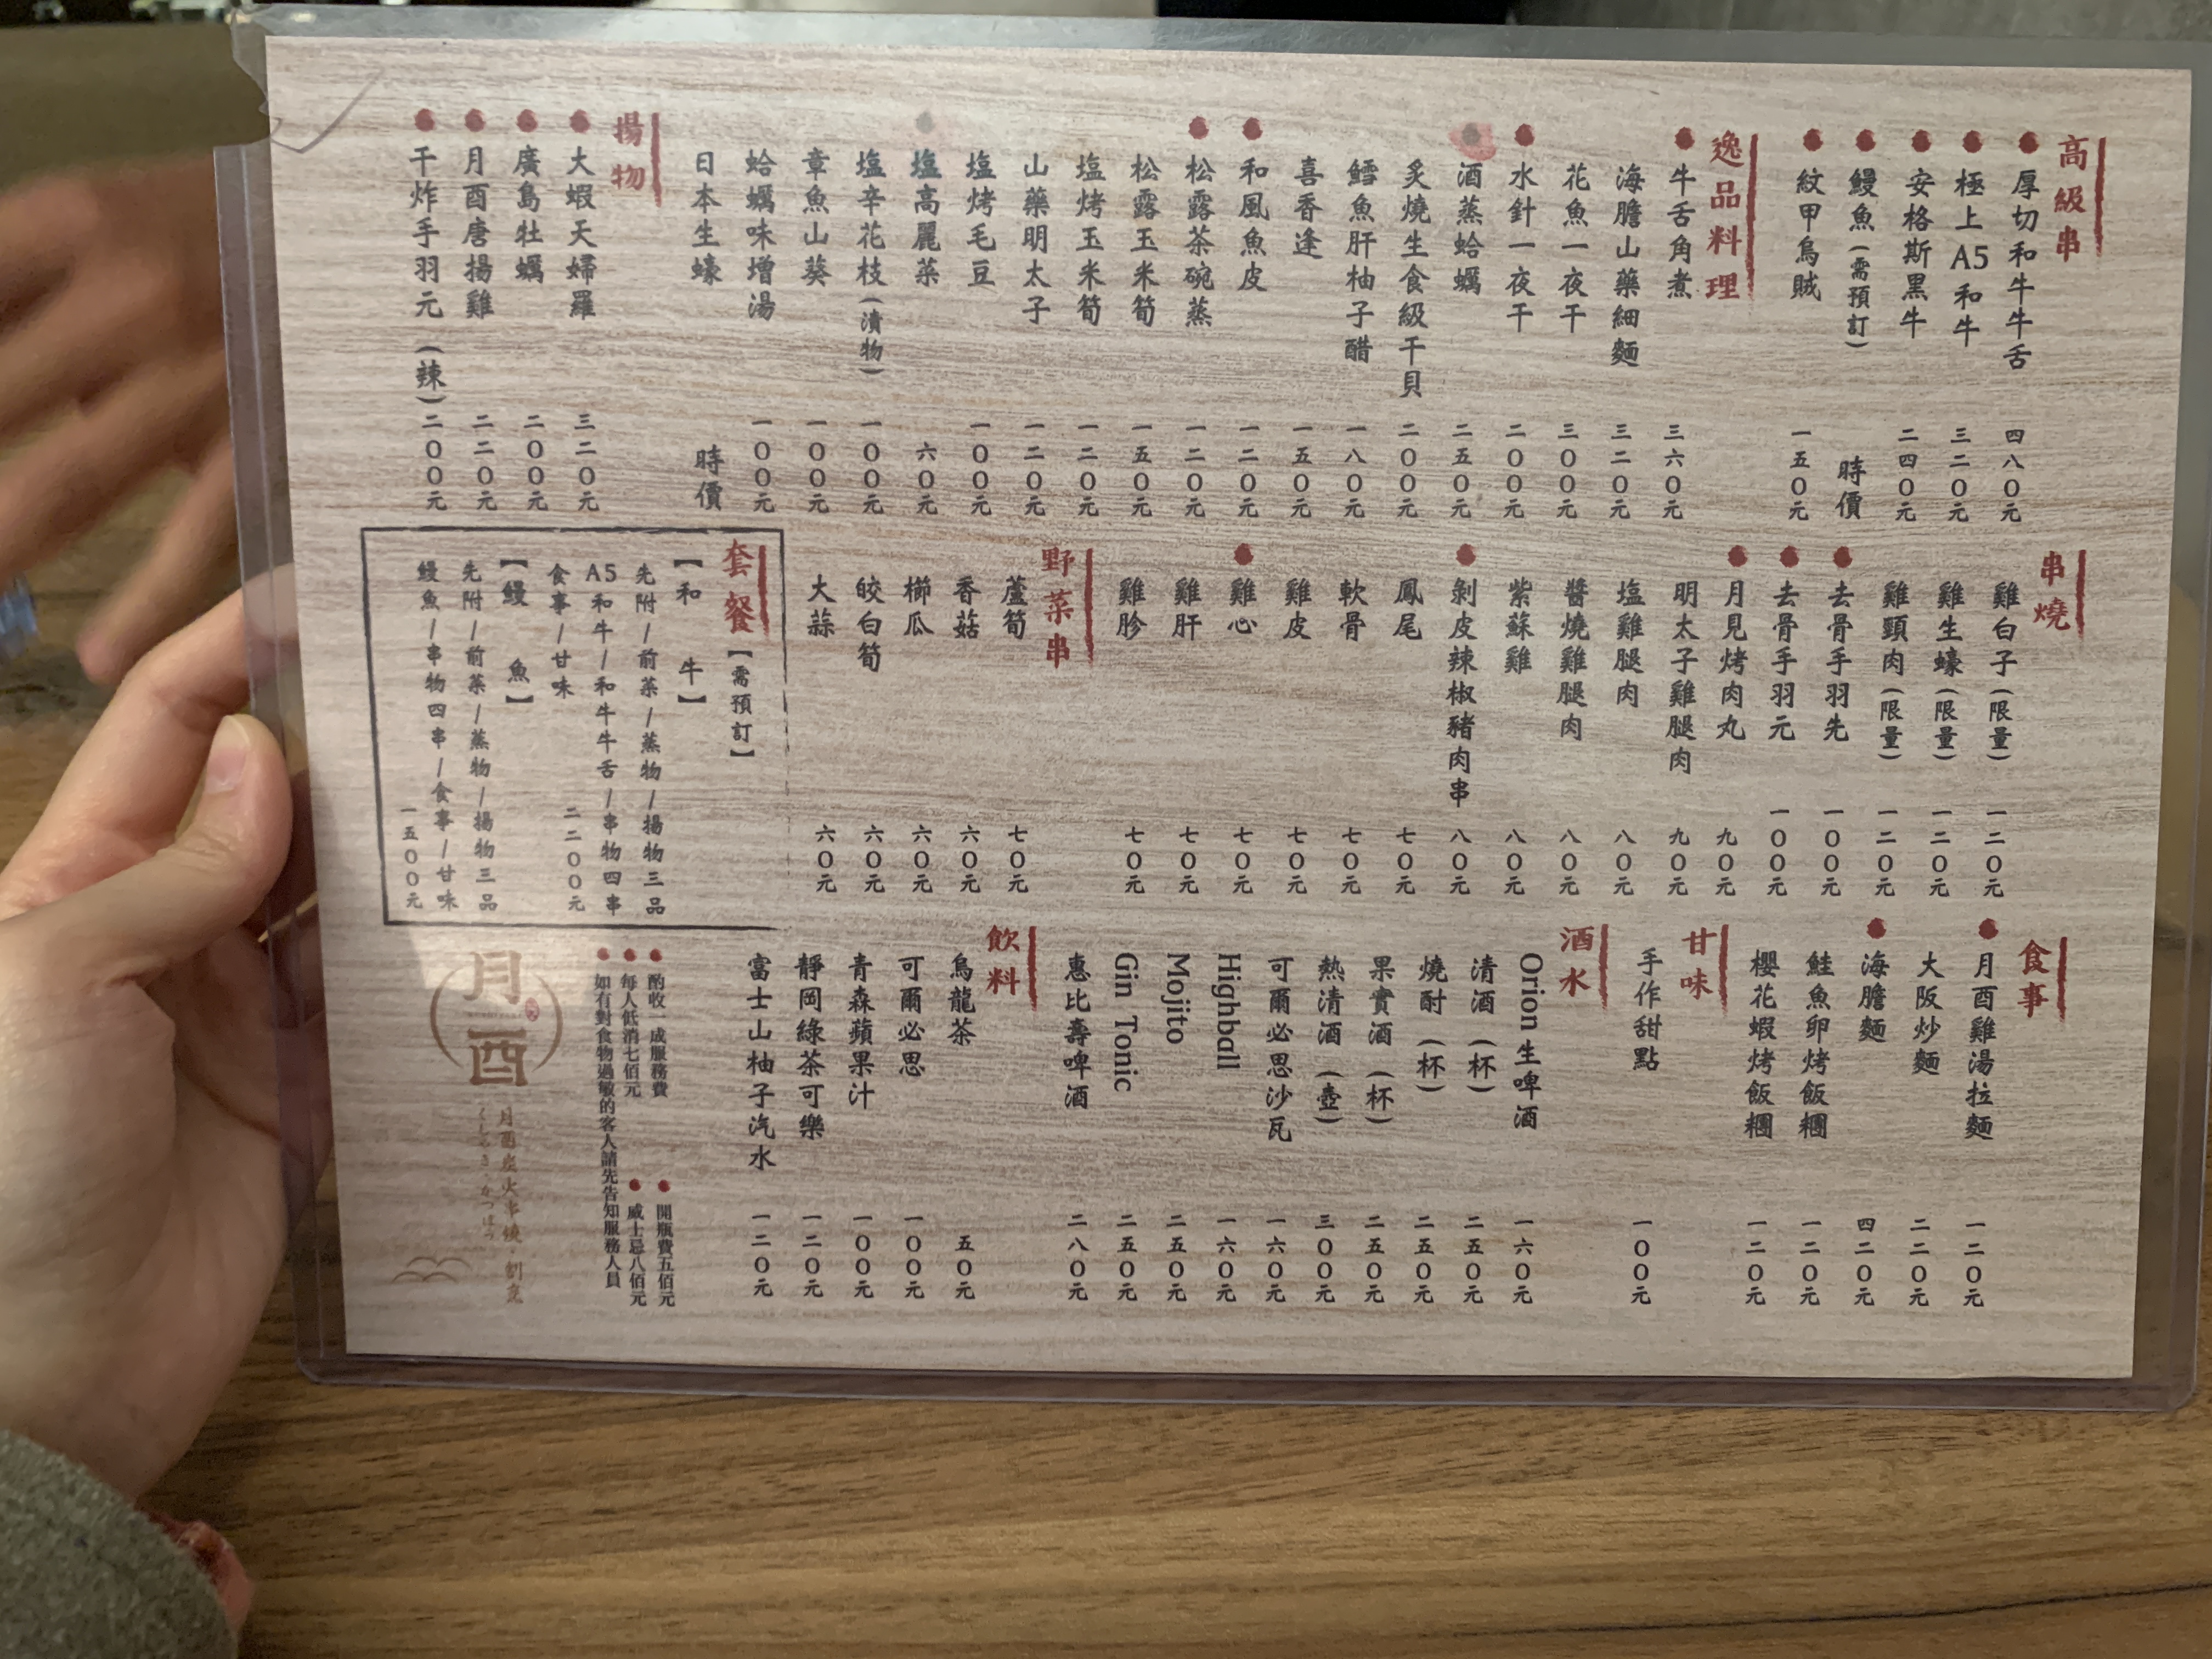 高級串
厚切和牛牛舌 四八〇元
極上A5和牛 三二〇元
安格斯黑牛 二四〇元
鰻魚(需預訂) 時價
紋甲烏賊 一五〇元
逸品料理
牛舌角煮 三六〇元
海膽山藥細麵 三二〇元
花魚一夜干 三〇〇元
水針一夜干 二〇〇元
酒蒸蛤蠣 二五〇元
炙燒生食級干貝 二〇〇元
鱈魚肝柚子醋 一八〇元
喜香逢 一五〇元
和風魚皮 一二〇元
松露茶碗蒸 一二〇元
松露玉米筍 一五〇元
塩烤玉米筍 一二〇元
山藥明太子 一二〇元
塩烤毛豆 一〇〇元
塩高麗菜 六〇元
塩辛花枝(漬物) 一〇〇元
章魚山葵 一〇〇元
蛤蠣味增湯 一〇〇元
日本生蠔 時價
揚物
大蝦天婦羅 三二〇元
廣島牡蠣 二〇〇元
月酉唐揚雞 二二〇元
干炸手羽元(辣) 二〇〇元
串燒
雞白子(限量) 一二〇元
雞生蠔(限量) 一二〇元
雞頸肉(限量) 一二〇元
去骨手羽先 一〇〇元
去骨手羽元 一〇〇元
月見烤肉丸 九〇元
明太子雞腿肉 九〇元
塩雞腿肉 八〇元
醬燒雞腿肉 八〇元
紫蘇雞 八〇元
剝皮辣椒豬肉串 八〇元
鳳尾 七〇元
軟骨 七〇元
雞皮 七〇元
雞心 七〇元
雞肝 七〇元
雞胗 七〇元
野菜串
蘆筍 七〇元
香菇 六〇元
櫛瓜 六〇元
皎白筍 六〇元
大蒜 六〇元
套餐【需預訂】
【和牛】
先附/前菜/蒸物/揚物三品
A5和牛/和牛牛舌/串物四串
食事/甘味 二二〇〇元
【鰻魚】
先附/前菜/蒸物/揚物三品
鰻魚/串物四串/食事/甘味
一五〇〇元
食事
月酉雞湯拉麵 一二〇元
大阪炒麵 二二〇元
海膽麵 四二〇元
鮭魚卵烤飯糰 一二〇元
櫻花蝦烤飯糰 一二〇元
甘味
手作甜點 一〇〇元
酒水
Orion生啤酒 一六〇元
清酒(杯) 二五〇元
燒酎(杯) 二五〇元
果實酒(杯) 二五〇元
熱清酒(壺) 三〇〇元
可爾必思沙瓦 一六〇元
Highball 一六〇元
Mojito 二五〇元
Gin Tonic 二五〇元
惠比壽啤酒 二八〇元
飲料
烏龍茶 五〇元
可爾必思 一〇〇元
青森蘋果汁 一〇〇元
靜岡綠茶可樂 一二〇元
富士山柚子汽水 一二〇元
酌收一成服務費
開瓶費五佰元
每人低消七佰元
威士忌八佰元
如有對食物過敏的客人請先告知服務人員
月酉
月酉炭火串燒·割烹